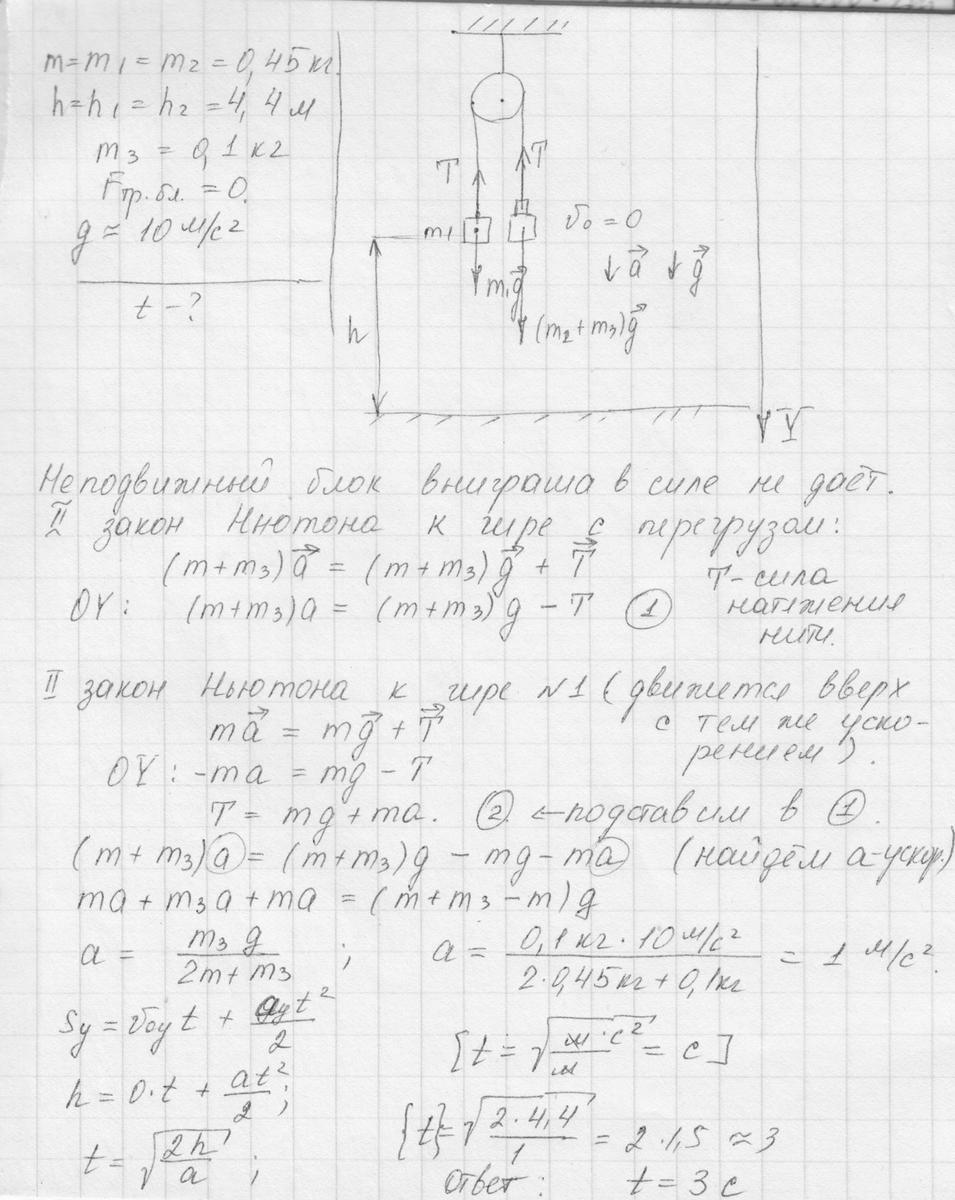 m=m₁=m₂=0,45кг.
h=h₁=h₂=4,4м
m₃ = 0,1кг
Fтр.бл. = 0.
g ≈ 10 м/с²
t - ?
T
T
m₁
v₀ = 0
a⃗
g⃗
m₁g⃗
(m₂+m₃)g⃗
h
Y
Неподвижный блок выиграша в силе не даёт.
II закон Ньютона к гире с перегрузом:
(m+m₃)a⃗ = (m+m₃)g⃗ + T⃗
T-сила
OY: (m+m₃)a = (m+m₃)g - T ①
натяжения
нити.
II закон Ньютона к гире №1 (движется вверх
ma⃗ = mg⃗ + T⃗
с тем же уско-
рением).
OY: -ma = mg - T
T = mg + ma. ② ←подставим в ①.
(m+m₃)a = (m+m₃)g - mg - ma (найдём a-ускор.)
ma + m₃a + ma = (m+m₃-m)g
a = m₃g / (2m+m₃) ; a = 0,1кг·10м/с² / (2·0,45кг+0,1кг) = 1 м/с².
Sy = v₀y t + ayt²/2
[t = √(м·с²/м) = с]
h = 0·t + at²/2;
{t} = √(2·4,4/1) = 2·1,5 ≈ 3
t = √(2h/a) ;
Ответ: t = 3 с